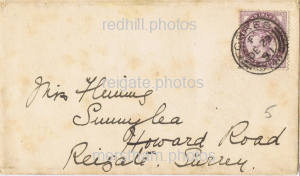 redhill.photos
Miss Fleming
reigate.photos
Sunnylea
Howard Road
5
merstham.photos
Reigate. Surrey.